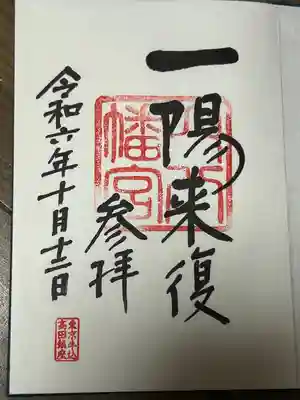 一陽来復
穴八
幡宮
参拝
令和六年十月十二日
東京牛込
高田鎮座